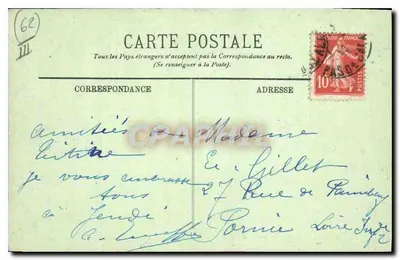 62
III
CARTE POSTALE
Tous les Pays étrangers n'acceptent pas la Correspondance au recto.
(Se renseigner à la Poste).
CORRESPONDANCE
ADRESSE
10
PAS DE CALAIS
amitiés
je vous embrasse
tous
à Jeudi
Madame
E. Gillet
27 Rue de
Pornic Loire Infre